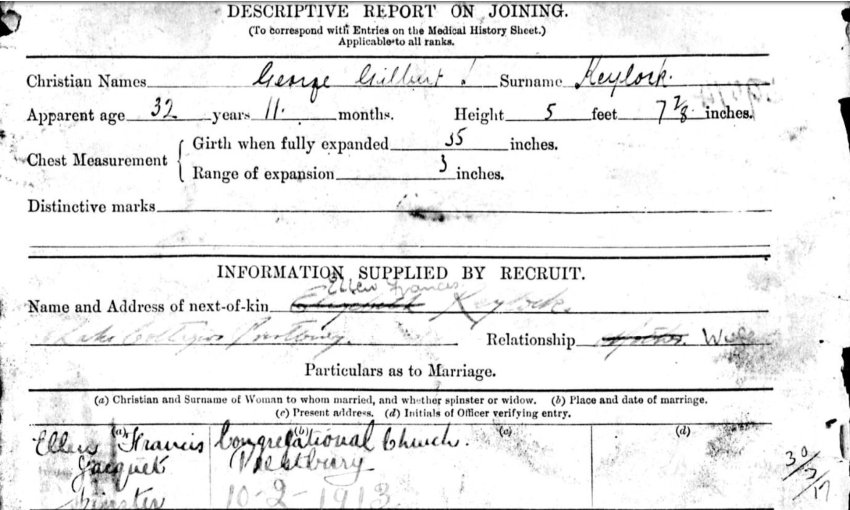 DESCRIPTIVE REPORT ON JOINING.
(To correspond with Entries on the Medical History Sheet.)
Applicable to all ranks.
Christian Names George Gilbert Surname Keylock.
Apparent age 32 years 11 months. Height 5 feet 7 7/8 inches.
Chest Measurement { Girth when fully expanded 35 inches.
Range of expansion 3 inches.
Distinctive marks
INFORMATION SUPPLIED BY RECRUIT.
Ellen Francis
Name and Address of next-of-kin Elizabeth Keylock.
Relationship Mother Wife
Particulars as to Marriage.
(a) Christian and Surname of Woman to whom married, and whether spinster or widow. (b) Place and date of marriage.
(c) Present address. (d) Initials of Officer verifying entry.
(a) (b) (c) (d)
Ellen Francis Congregational Church.
Jacquet Westbury
Spinster 10-2-1913
30/3/17